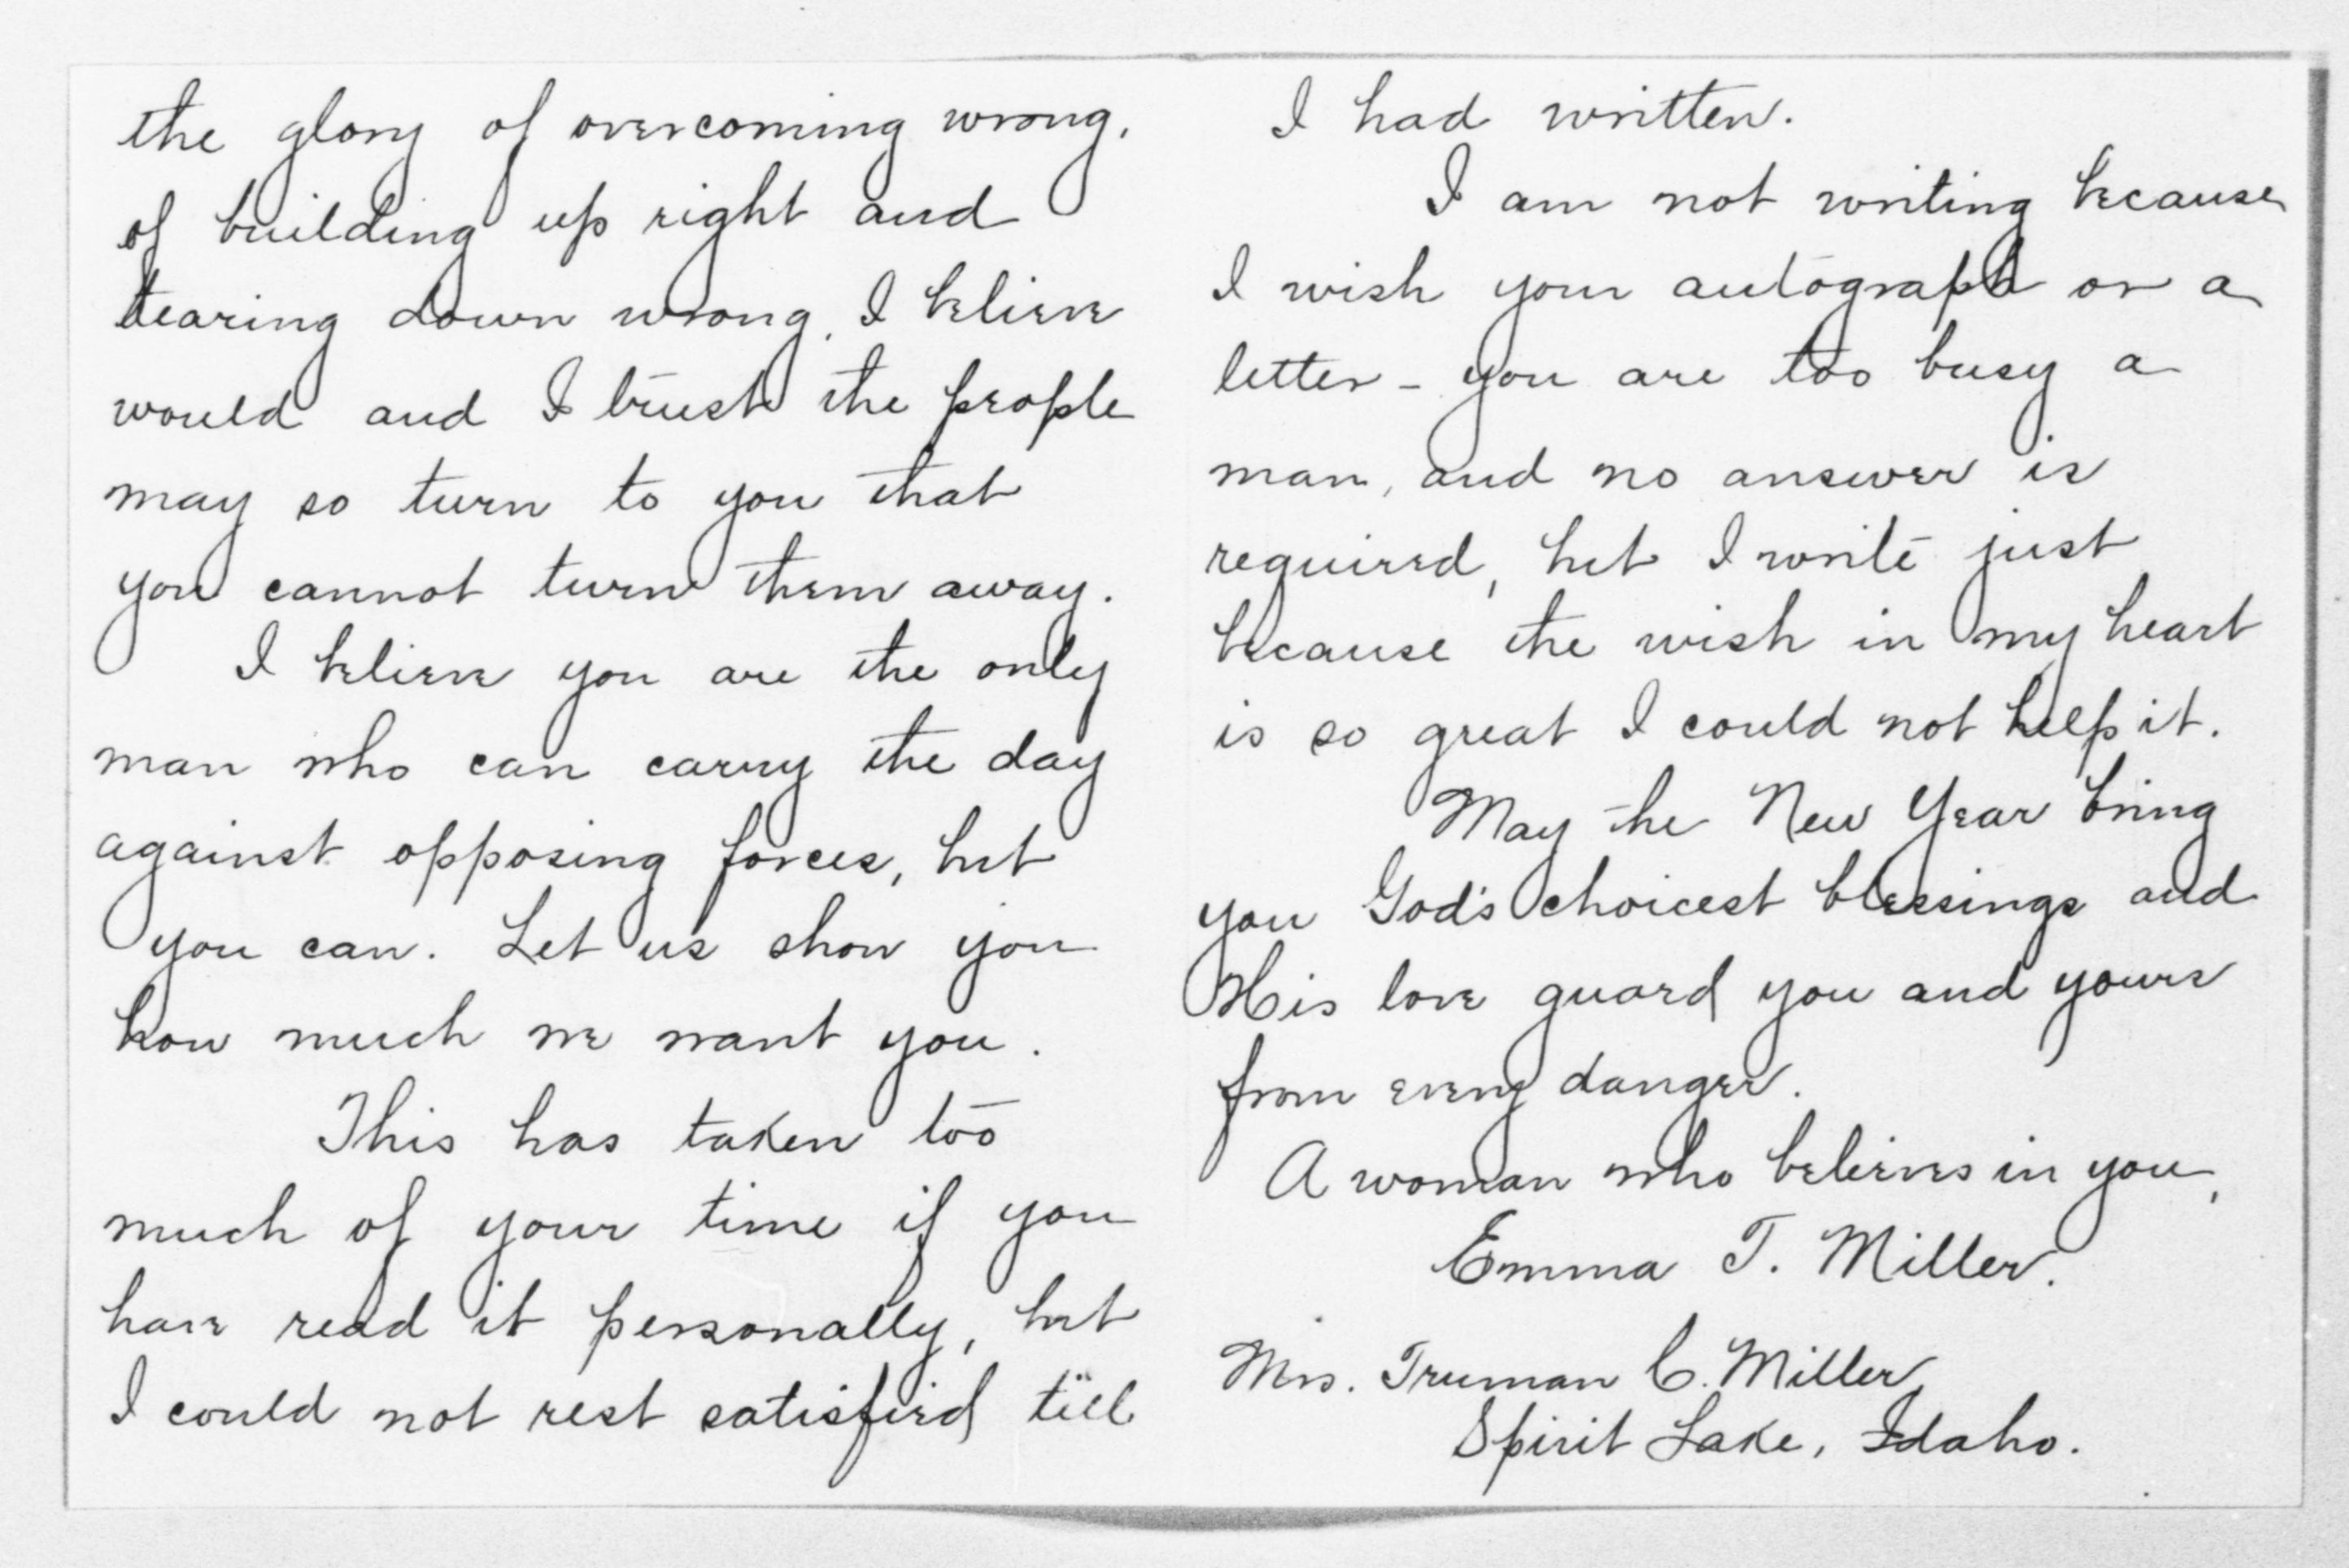 the glory of overcoming wrong,
of building up right and
tearing down wrong. I believe
would and I trust the people
may so turn to you that
you cannot turn them away.
I believe you are the only
man who can carry the day
against opposing forces, but
you can. Let us show you
how much we want you.
This has taken too
much of your time if you
have read it personally, but
I could not rest satisfied till
I had written.
I am not writing because
I wish your autograph or a
letter - you are too busy a
man, and no answer is
required, but I write just
because the wish in my heart
is so great I could not help it.
May the New Year bring
you God's choicest blessings and
His love guard you and yours
from every danger.
A woman who believes in you,
Emma T. Miller.
Mrs. Truman C. Miller,
Spirit Lake, Idaho.